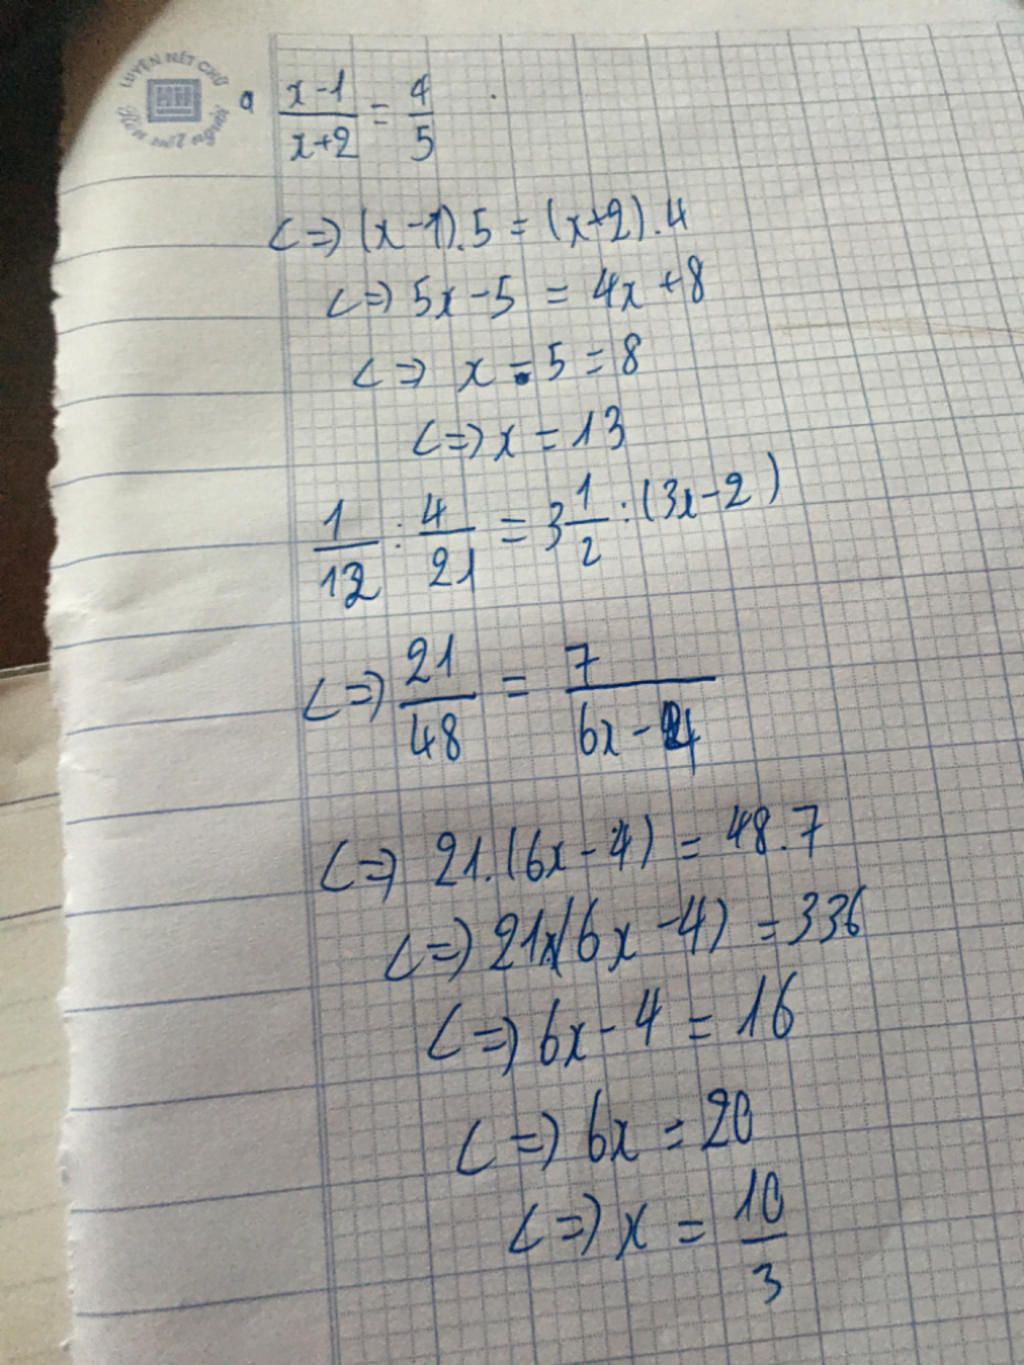 LUYỆN NÉT CHỮ
Rèn nết người
a x-1/x+2 = 4/5
<=> (x-1).5 = (x+2).4
<=> 5x-5 = 4x+8
<=> x-5=8
<=> x=13
1/12 : 4/21 = 3 1/2 : (3x-2)
<=> 21/48 = 7/6x-4
<=> 21.(6x-4) = 48.7
<=> 21x(6x-4) = 336
<=> 6x-4 = 16
<=> 6x = 20
<=> x = 10/3